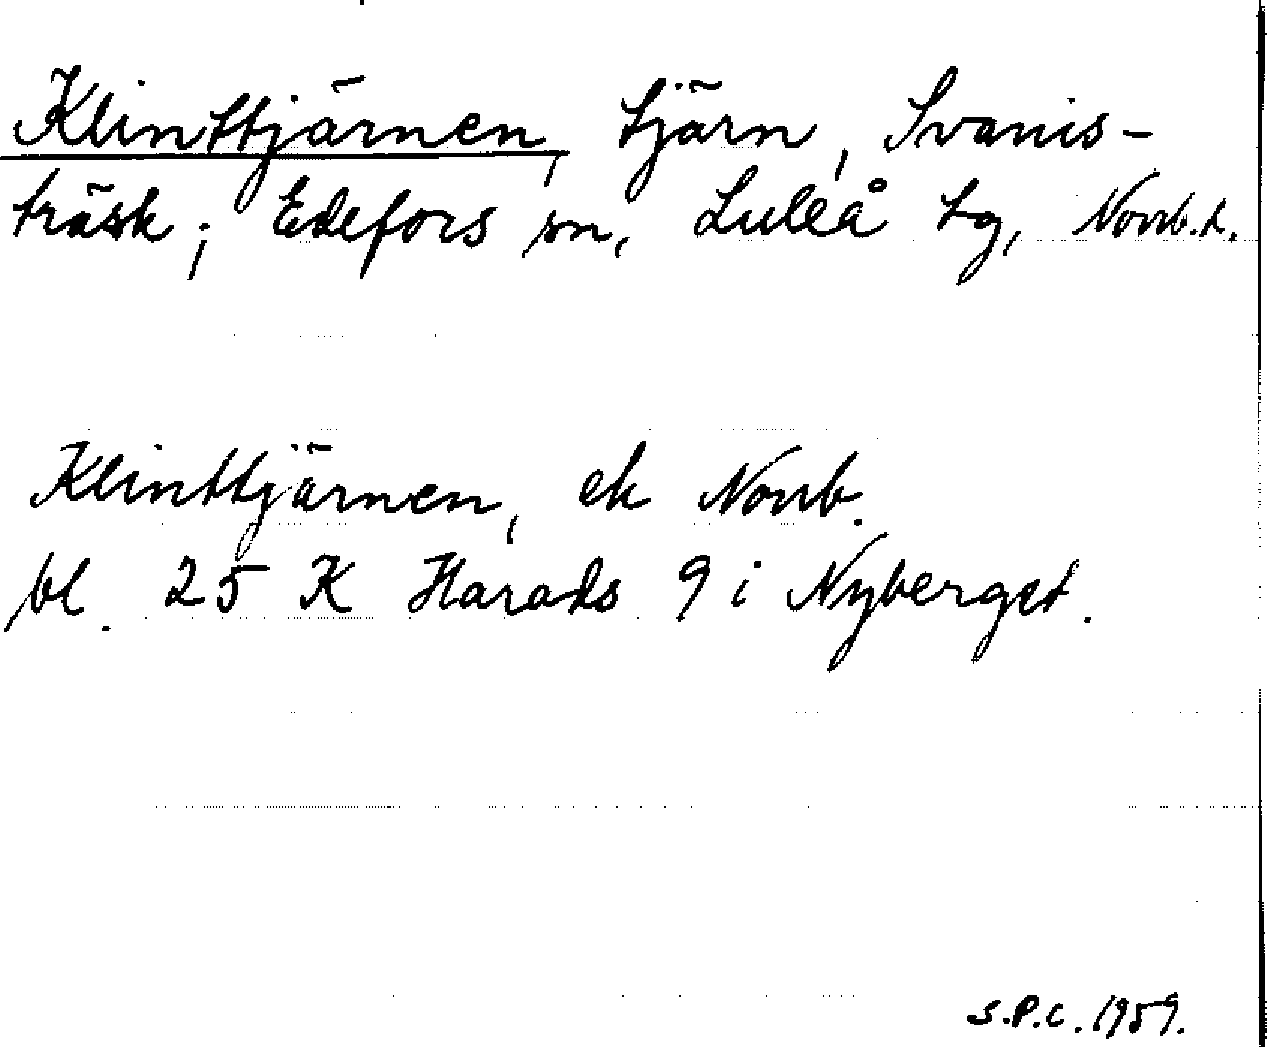 Klinttjärnen, tjärn, Svanis-
träsk; Edefors sn, Luleå tg, Norrb. l.
Klinttjärnen, ek Norrb.
bl. 25 K Harads 9 i Nyberget.
S.P.C. 1959.